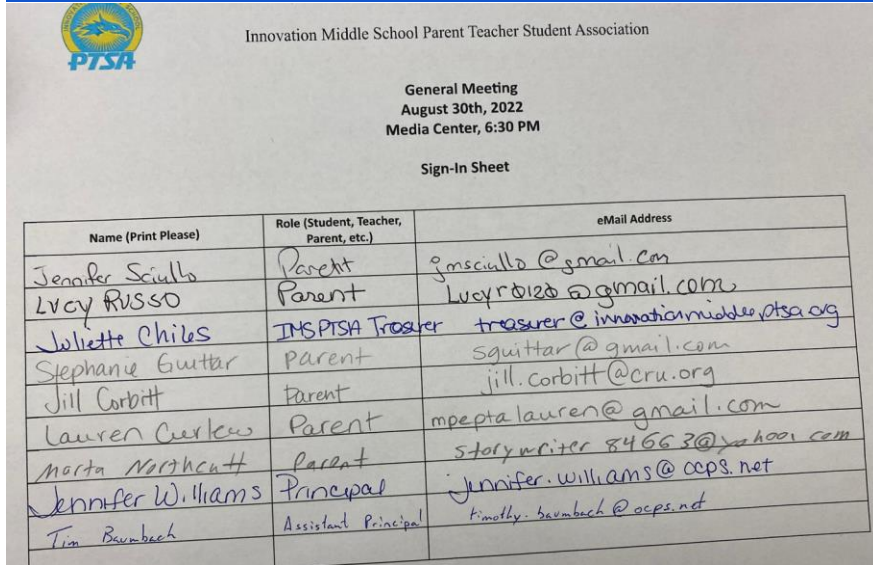 PTSA
Innovation Middle School Parent Teacher Student Association
General Meeting
August 30th, 2022
Media Center, 6:30 PM
Sign-In Sheet
Name (Print Please) Role (Student, Teacher, Parent, etc.) eMail Address
Jennifer Sciullo Parent jmsciullo@gmail.com
Lucy Russo Parent Lucyr0120@gmail.com
Juliette Chiles IMSPTSA Trosurer treasurer@innovationmiddleptsa.org
Stephanie Guittar Parent sguittar@gmail.com
Jill Corbitt Parent jill.corbitt@cru.org
Lauren Curlew Parent mpeptalauren@gmail.com
Marta Northcutt Parent storywriter84663@yahoo.com
Jennifer Williams Principal jennifer.williams@ocps.net
Tim Baumbach Assistant Principal timothy.baumbach@ocps.net